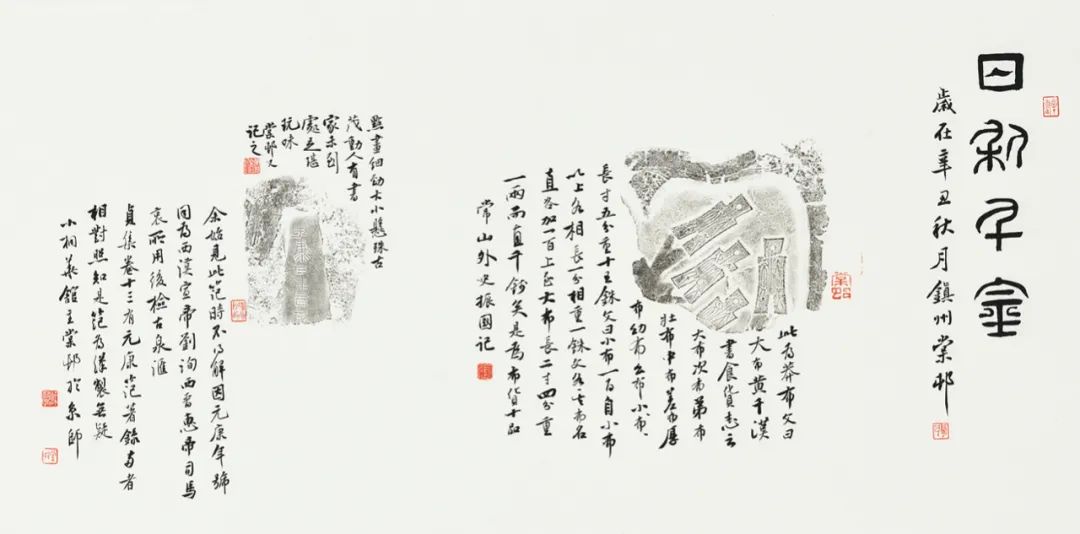 日利千金
歲在辛丑秋月鎮州棠邨
此為莽布文曰
大布黃千漢
書食貨志云
大布次布弟布
壯布中布差布厚
布幼布幺布小布
長寸五分重十五銖文曰小布一百自小布
以上各相長一分相重一銖文各為布名
直各加一百上至大布長二寸四分重
一兩而直千錢矣是為布貨十品
常山外史振國記
點畫細勁大小懸殊古
茂動人有書
家未到
處足堪
玩味
棠邨又
記之
余始見此范時不得解因元康年號
同為西漢宣帝劉詢西晉惠帝司馬
衷所用後檢古泉滙
貞集卷十三有元康范著錄兩者
相對照知是范為漢製無疑
小桐華館主棠邨於京師